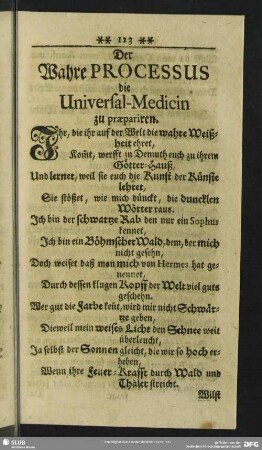 ** 123 **
Der
Wahre PROCESSUS
die
Universal-Medicin
zu præpariren.
Ihr, die ihr auf der Welt die wahre Weiß-
heit ehret,
Kom̃t, werfft in Demuth euch zu ihrem
Götter-Hauß,
Und lernet, weil sie euch die Kunst der Künste
lehret,
Sie stösset, wie mich dünckt, die duncklen
Wörter raus.
Ich bin der schwartze Rab den nur ein Sophus
kennet,
Ich bin ein Böhmscher Wald, dem, der mich
nicht gesehn,
Doch weiset daß man mich von Hermes hat ge-
nennet,
Durch dessen klugen Kopff der Welt viel guts
geschehn.
Wer gut die Farbe keñt, wird mir nicht Schwär-
tze geben,
Dieweil mein weises Licht den Schnee weit
überleucht,
Ja selbst der Sonnen gleicht, die wir so hoch er-
heben,
Wenn ihre Feuer-Krafft durch Wald und
Thäler streicht.
Wilst
SLUB
DFG